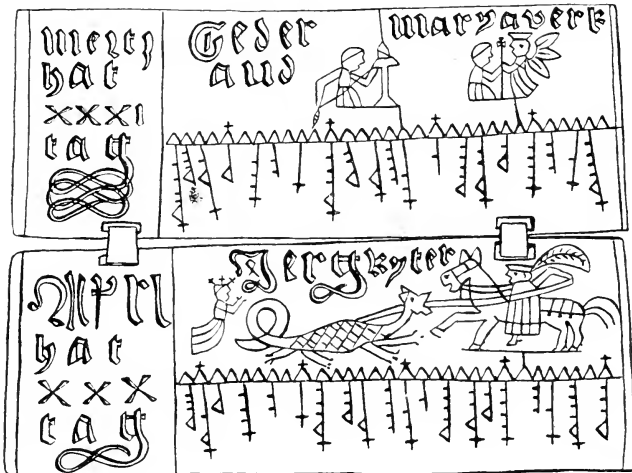 Mertz
hat
XXXI
tag
Geder
aud
Maryaverk
Apri
hat
XXX
tag
Jergryter